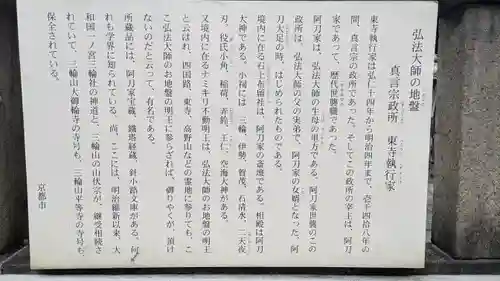 弘法大師の地盤
真言宗政所　東寺執行家
東寺執行家は弘仁十四年から明治四年まで、壱千四拾八年の
間、真言宗の政所であった。そしてこの政所の宰主は、阿刀
家であって、歴代世襲職であった。
阿刀家は、弘法大師の生母の里方である。阿刀家世襲のこの
政所は、弘法大師の父の実弟で、阿刀家の女婿となった、阿
刀大足の時、はじめられたものである。
境内に在る石上布留社は、阿刀家の斎壇である。相殿は阿刀
大神である。小祠には、三輪、伊勢、賀茂、石清水、二天夜
刃、役氏小角、稲荷、赤鈴、王仁、空海大神がある。
又境内に在るナミキリ不動明王は、弘法大師のお地盤の明王
と云はれ、四国路、東寺、高野山などの霊地に参りても、こ
こ弘法大師のお地盤の明王に参らざれば、御りやくが、頂け
ないのだと云って、有名である。
所蔵品には、阿刀家宝蔵、鐡塔経蔵、斜小路文庫がある。何
れも学界に知られている。尚、ここには、明治維新以来、大
和国一ノ宮三輪社の神道と、三輪山の山伏宗が、継受相続さ
れていて、三輪山大御輪寺の寺号も、三輪山平等寺の寺号も、
保全されている。
京都市